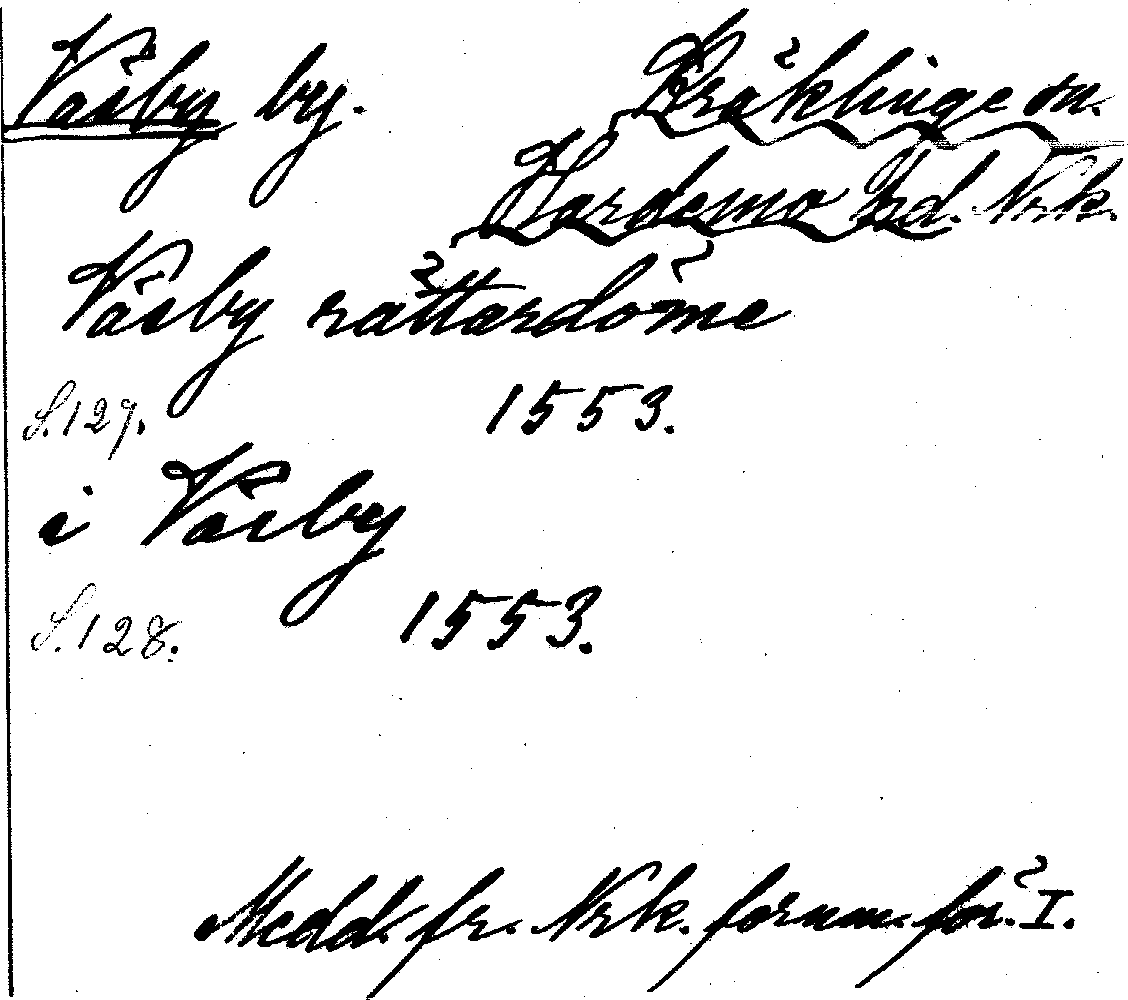 Väsby by. Kräklinge sn.
Hardemo hd. Nrk.
Väsby rättardöme
S.127. 1553.
i Väsby
S.128. 1553.
Medd. fr. Nrk. fornm. för. I.